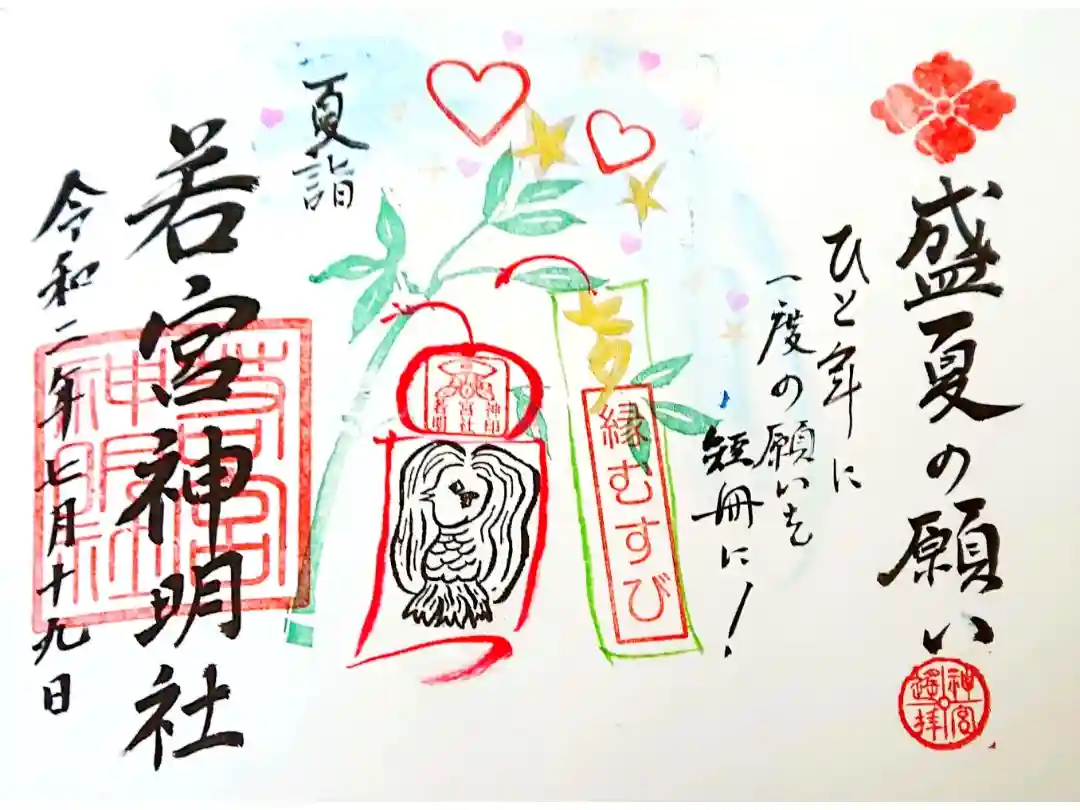 盛夏の願い
神宮
遙拝
ひと年に
一度の願いを
短冊に!
縁むすび
夏詣
神印
宮社
若明
若宮神明社
若宮
神明社
令和二年七月十九日